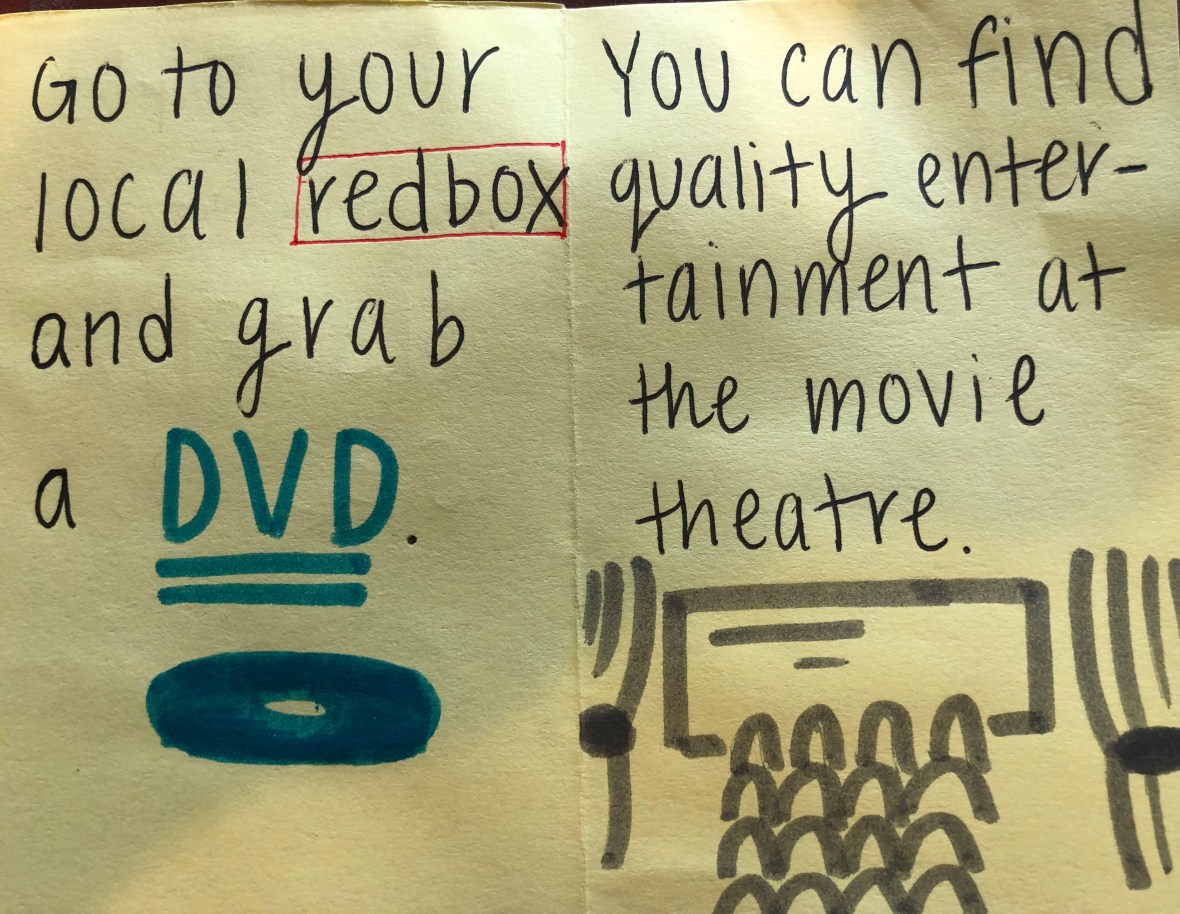 Go to your
local redbox
and grab
a DVD.
You can find
quality enter-
tainment at
the movie
theatre.